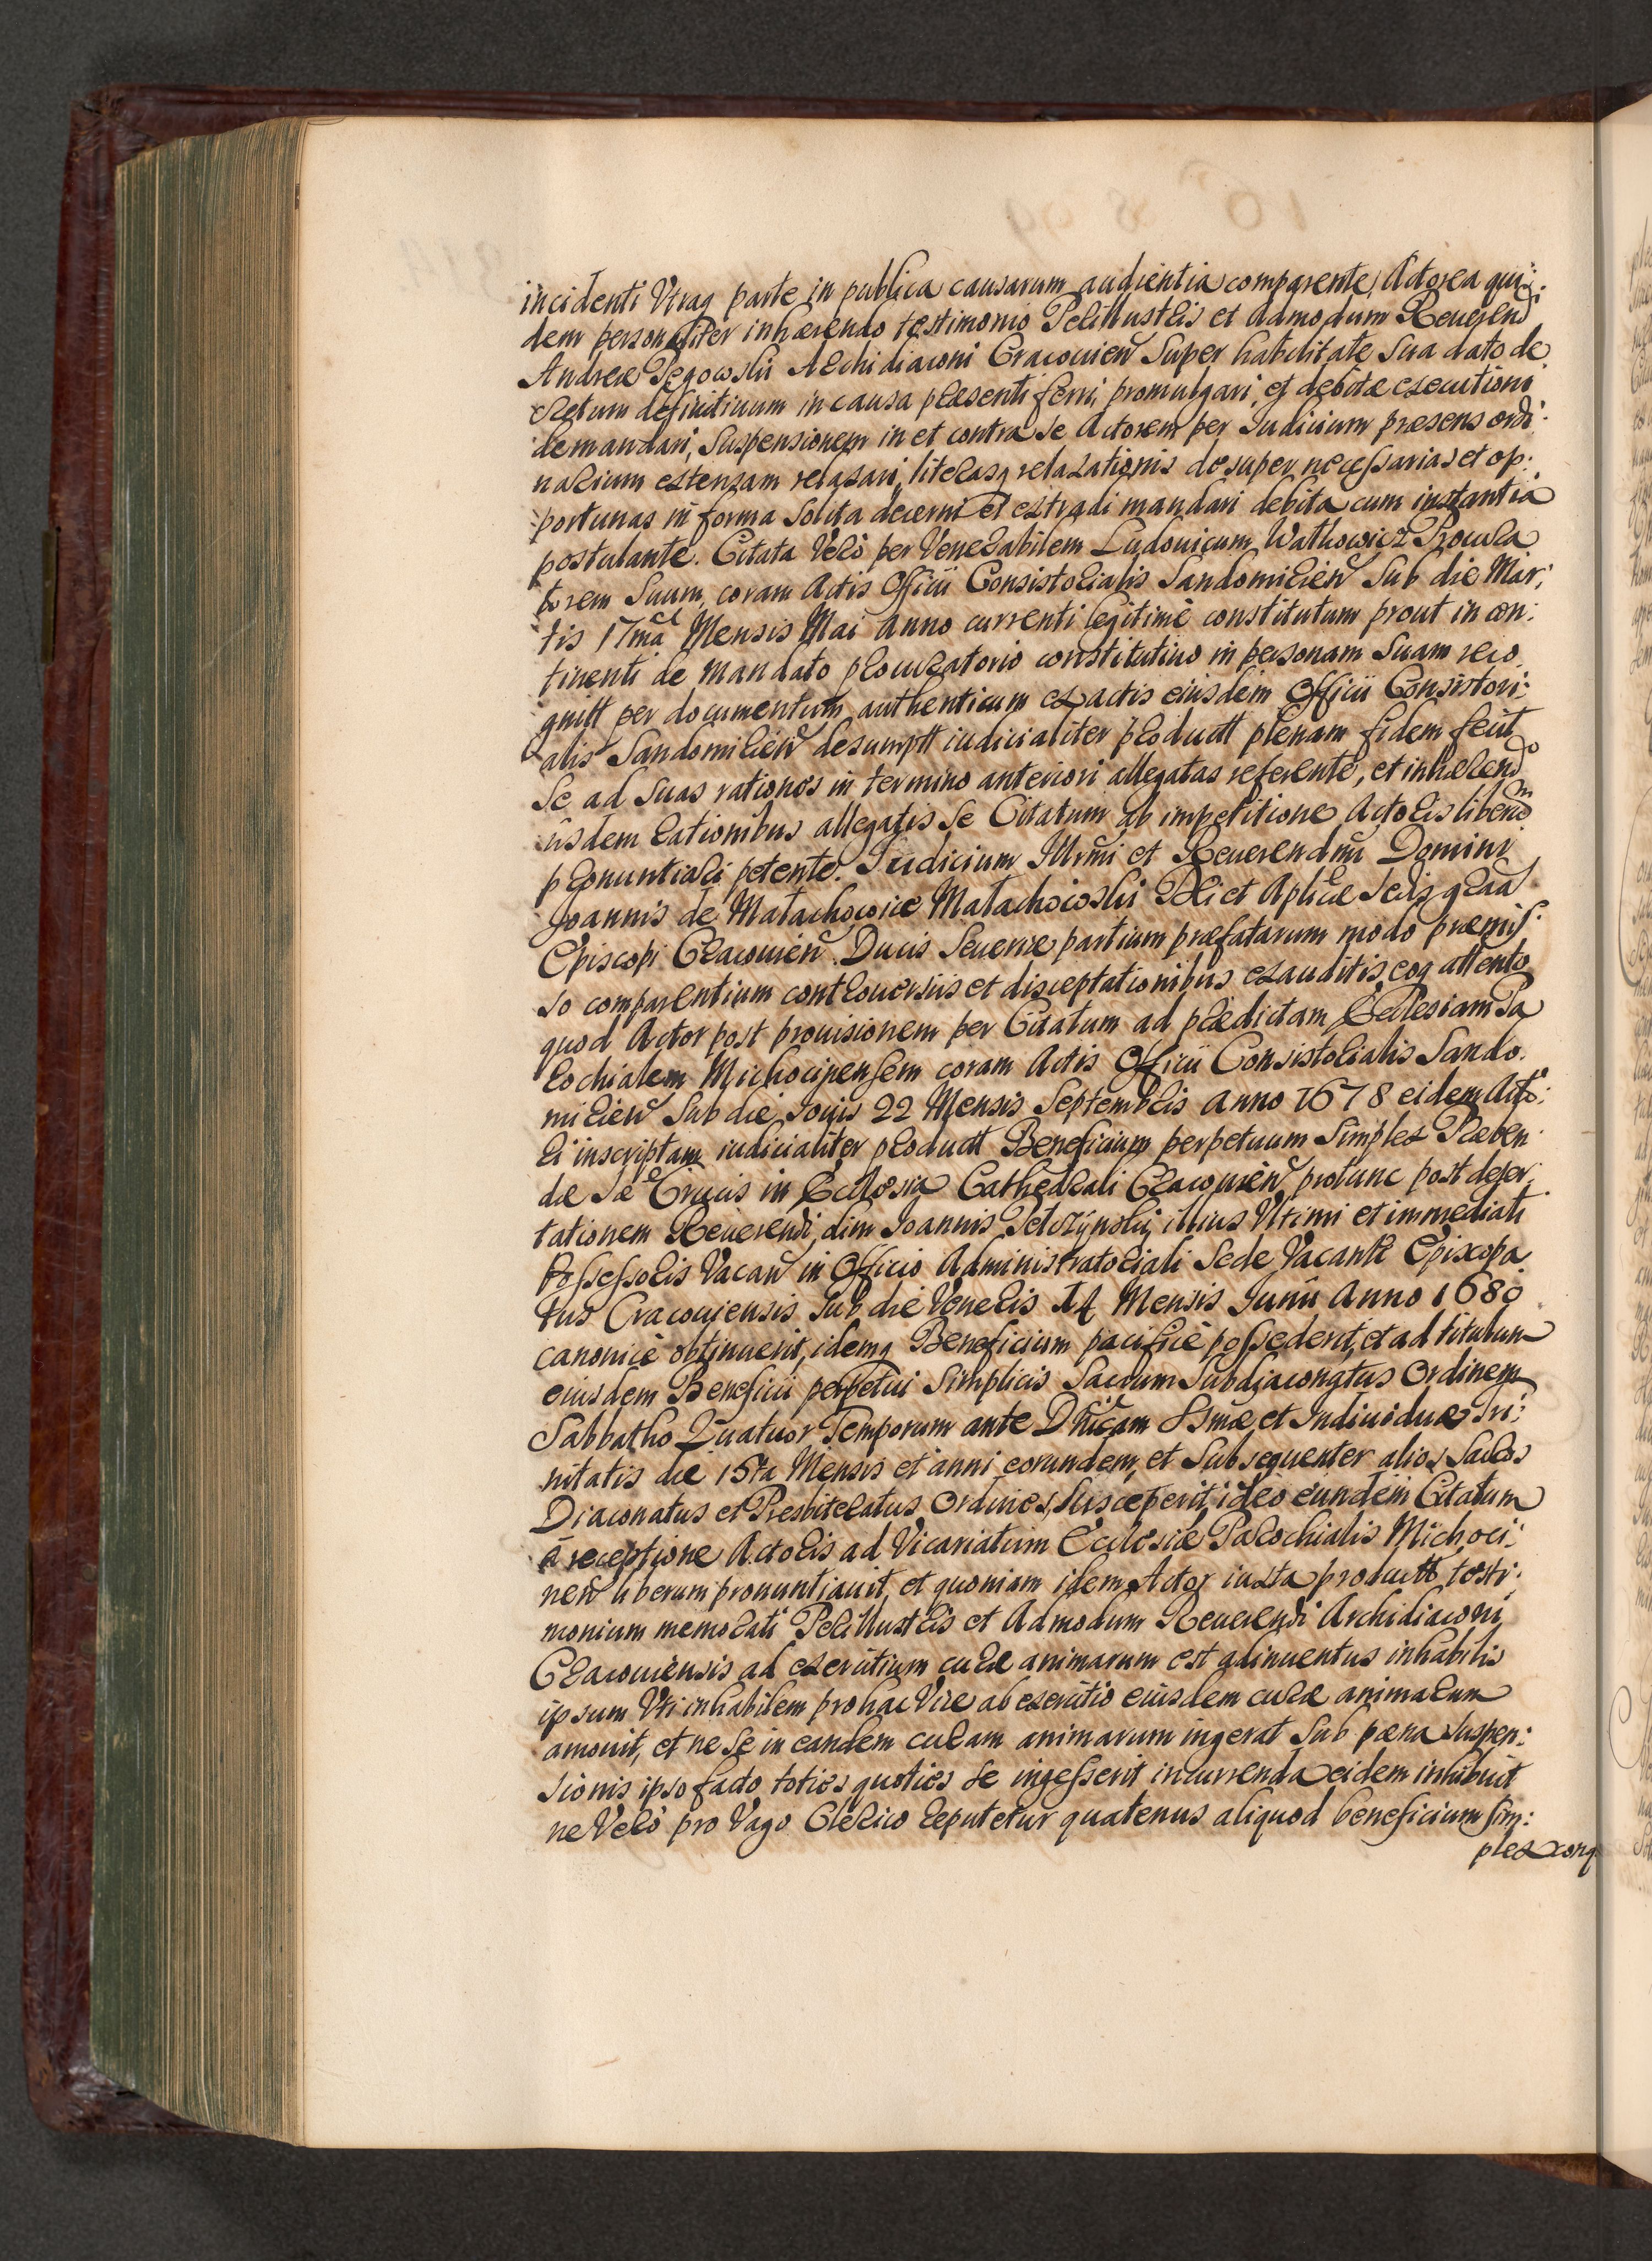 incidenti Utraq parte in publica causarum audientia comparente, Actorea qui:
dem personaliter inhærendo testimonio Perillustris et Admodum Reuerendi
Andreæ Pegowski Archidiaconi Cracouien Super habilitate Sua dato de
cretum definitiuum in causa præsenti ferri, promulgari, et debitæ executioni
demandari, Suspensionem in et contra se Actorem per Iudicium præsens ordi:
narium extensam relaxari, literasq relaxationis desuper necessarias et op:
portunas in forma Solita decerni et extradi mandari debita cum instantia
postulante. Citata Verò per Venerabilem Ludouicum Wathowicz Procura
torem Suum, coram Actis Officii Consistorialis Sandomirien Sub die Mar:
tis 17ma Mensis Mai Anno currenti legitimè constitutum prout in con:
tinenti de mandato procuratorio constitutiuo in personam Suam reco
gnitt per documentum authenticum ex actis eiusdem Officii Consistori:
alis Sandomirien desumptt iudicialiter productt plenam fidem fecit
Se ad Suas rationes in termino anteriori allegatas referente, et inhærendo
iisdem rationibus allegatis Se Citatum ab impetitione Actoris liberum
pronuntiari petente. Iudicium Illrmi et Reuerendmi Domini
Joannis de Małachowice Małachowski Dei et Aplicæ Sedis gratia
Episcopi Cracouien Ducis Seueriæ partium præfatarum modo præmis:
so comparentium controuersiis et disceptationibus exauditis, eoq attento
quod Actor post prouisionem per Citatum ad prædictam Ecclesiam Pa
rochialem Michocinensem coram Actis Officii Consistorialis Sando:
mirien Sub die Iouis 22 Mensis Septembris Anno 1678 eidem Acto:
ri inscriptam iudicialiter productt Beneficium perpetuum Simplex Præben
dæ Stæ Crucis in Ecclesia Cathedrali Cracouien protunc post deser:
tationem Reuerendi dim Joannis Petczynskij illius Vltimi et immediati
Possessoris Vacan in Officio Administratoriali Sede Vacante Episcopa
tus Cracouiensis Sub die Veneris 14 Mensis Iunii Anno 1680
canonicè obtinuerit, idemq Beneficium pacificè possederit, et ad titulum
eiusdem Beneficii perpetui Simplicis Sacrum Subdiaconatus Ordinem
Sabbatho Quatuor Temporum ante Dnicam SSmæ et Indiuiduæ Tri:
nitatis die 15ta Mensis et anni eorundem, et Subsequenter alios Sacros
Diaconatus et Presbiteratus Ordines Susceperit, ideò eundem Citatum
à receptione Actoris ad Vicariatum Ecclesiæ Parochialis Michoci:
nen liberum pronuntiauit, et quoniam idem Actor iuxta productt testi:
monium memorati Perillustris et Admodum Reuerendi Archidiaconi
Cracouiensis ad exercitium curæ animarum est adinuentus inhabilis
ipsum Vti inhabilem pro hac Vice ab exercitio eiusdem curæ animarum
amouit, et ne Se in eandem curam animarum ingerat Sub pæna Suspen:
sionis ipso facto toties quoties Se ingesserit incurrenda eidem inhibuit
ne Verò pro Vago Clerico reputetur quatenus aliquod beneficium sim:
plex cong